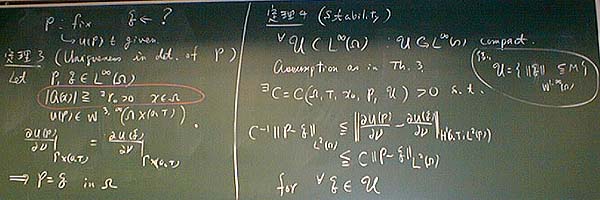 P : fix   q ← ?
↳ u(P) t given
定理3 (Uniqueness in det. of P)
Let P, q ∈ L^∞(Ω)
|a(x)| ≧ ∃r₀ > 0   x∈Ω
u(P) ∈ W^{3,∞}(Ω×(0,T)).
∂u(P)/∂ν |_{Γ×(0,T)} = ∂u(q)/∂ν |_{Γ×(0,T)}
⇒ P = q in Ω
定理4 (Stability)
∀U ⊂ L^∞(Ω) : U ⊂ L^∞(Ω) compact.
Assumption as in Th. 3
∃C = C(Ω, T, x₀, P, U) > 0 s.t.
C⁻¹ ||P-q||_{L²(Ω)} ≦ ||∂u(P)/∂ν - ∂u(q)/∂ν||_{H¹(0,T; L²(Γ))}
≦ C ||P-q||_{L²(Ω)}
for ∀q ∈ U
U = { ||q||_{W^{1,∞}(Ω)} ≦ M }